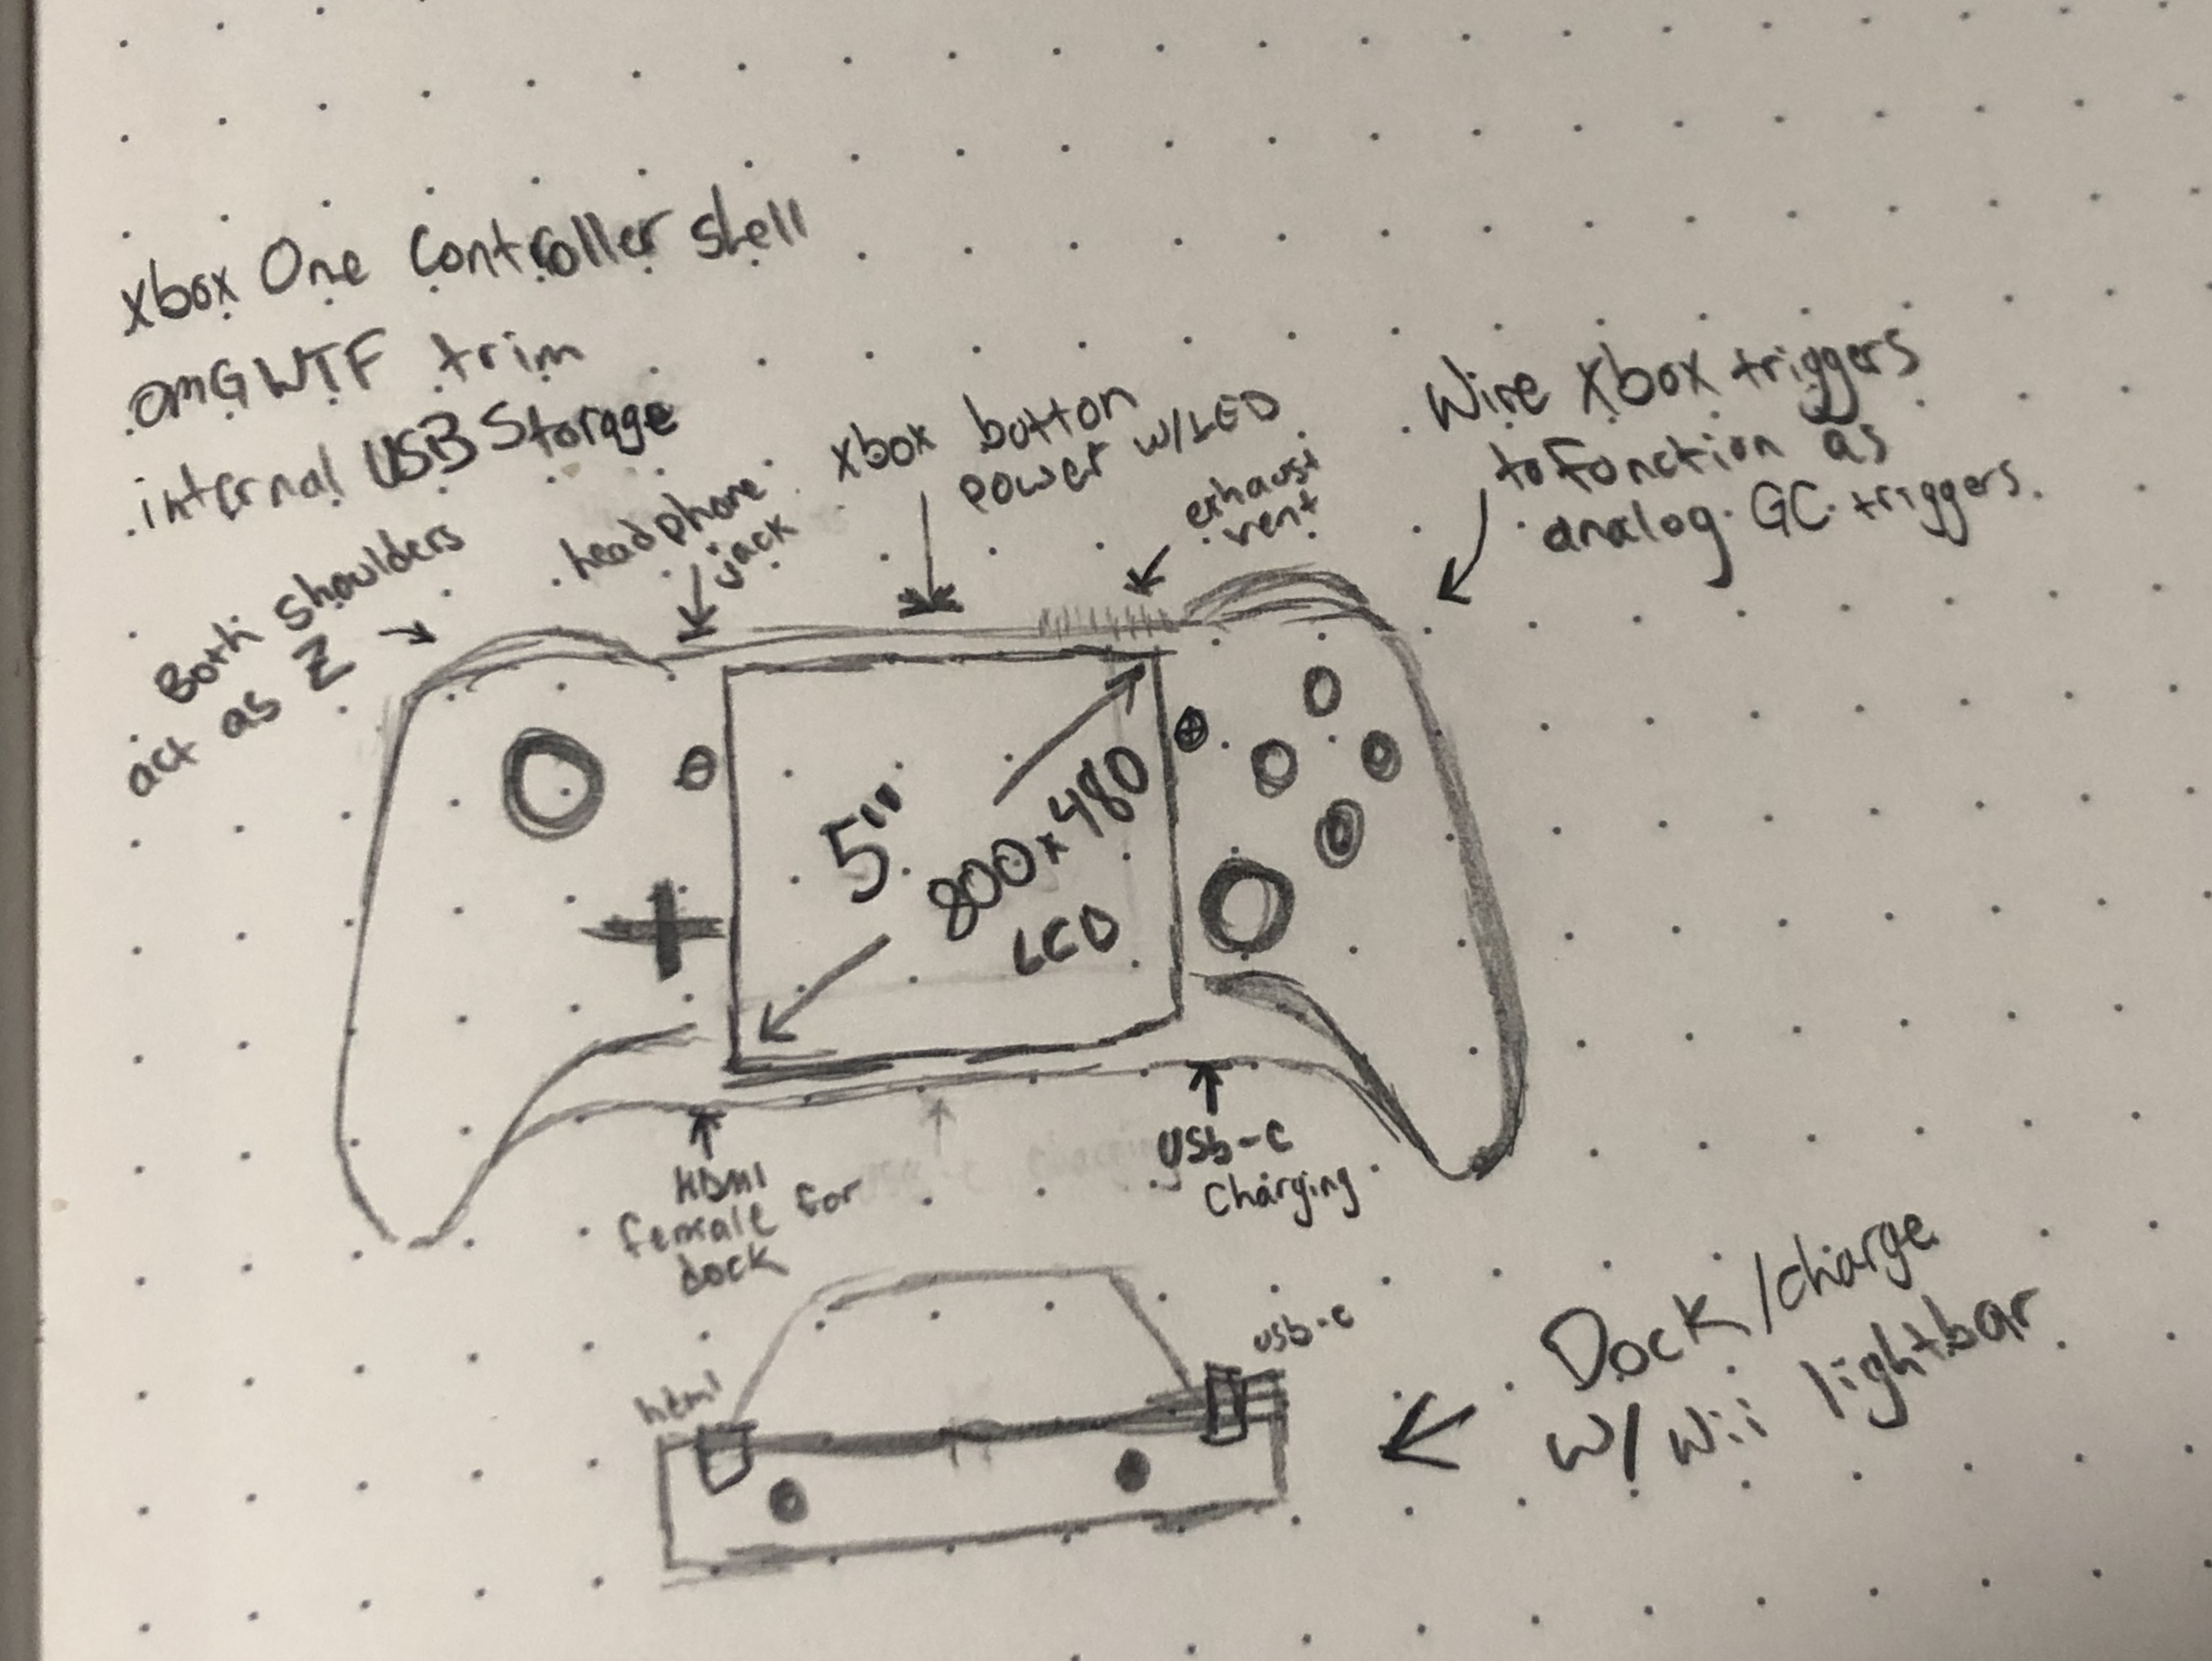 xbox One Controller shell
OMGWTF trim
internal USB Storage
Both shoulders
act as Z
headphone
jack
xbox button
power w/LED
exhaust
vent
Wire Xbox triggers
to function as
analog GC triggers
5"
800x480
LCD
HDMI
female for
dock
USb-C
Charging
USB-C Charging
html
usb-c
Dock/charge
w/ Wii lightbar